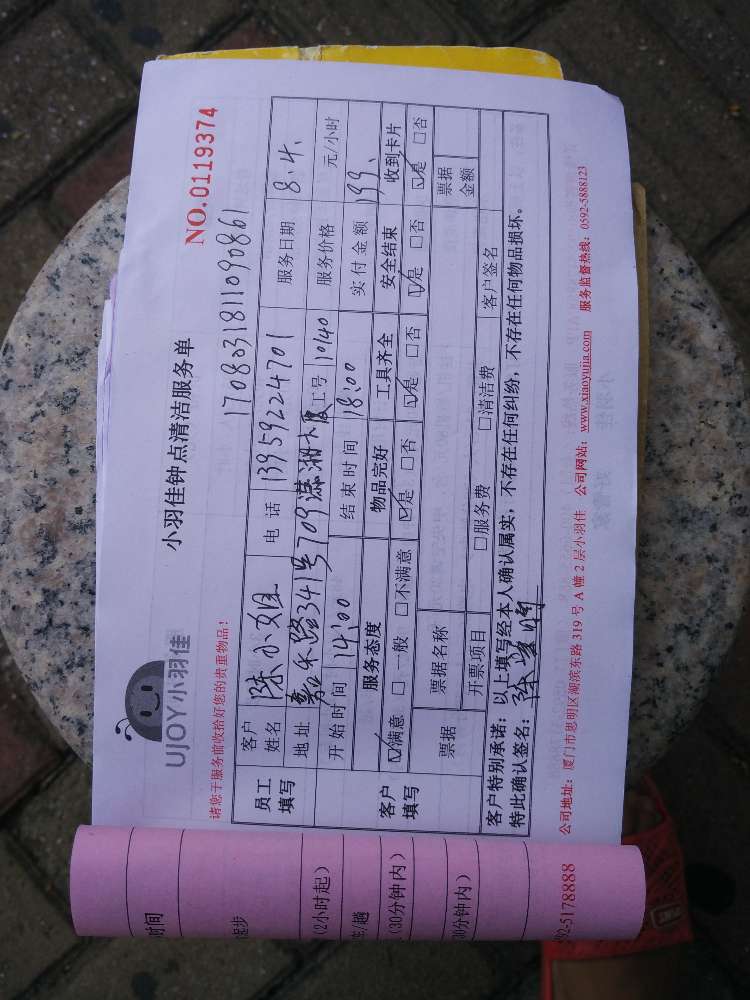 UJOY小羽佳
小羽佳钟点清洁服务单
NO.0119374
请您于服务前收拾好您的贵重物品!
1708031811090861
员工填写 客户姓名 陈小姐 电话 13959224701 服务日期 8.4.
地址 嘉禾路341号709潇湘大厦 工号 1040 服务价格 元/小时
客户填写 开始时间 14:00 结束时间 18:00 实付金额 199.
服务态度 物品完好 工具齐全 安全结束 收到卡片
☑满意 □一般 □不满意 ☑是 □否 ☑是 □否 ☑是 □否 ☑是 □否
票据 票据名称 票据金额
开票项目 □服务费 □清洁费 客户签名
客户特别承诺:以上填写经本人确认属实,不存在任何纠纷,不存在任何物品损坏。
特此确认签名:
公司地址:厦门市思明区湖滨东路319号A幢2层小羽佳 公司网站:www.xiaoyujia.com 服务监督热线:0592-5888123
时间
起步
(2小时起)
/趟
(30分钟内)
30分钟内)
92-5178888